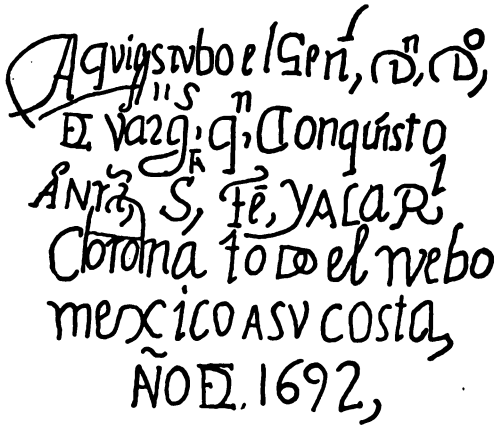 Aqui estubo el Genl, Dn, Do,
DE Vargs, qn, Conquisto
A Nra, S, Fe, Y A La Rl
Corona todo el nuebo
mexico A SU costa,
AÑO DE 1692,